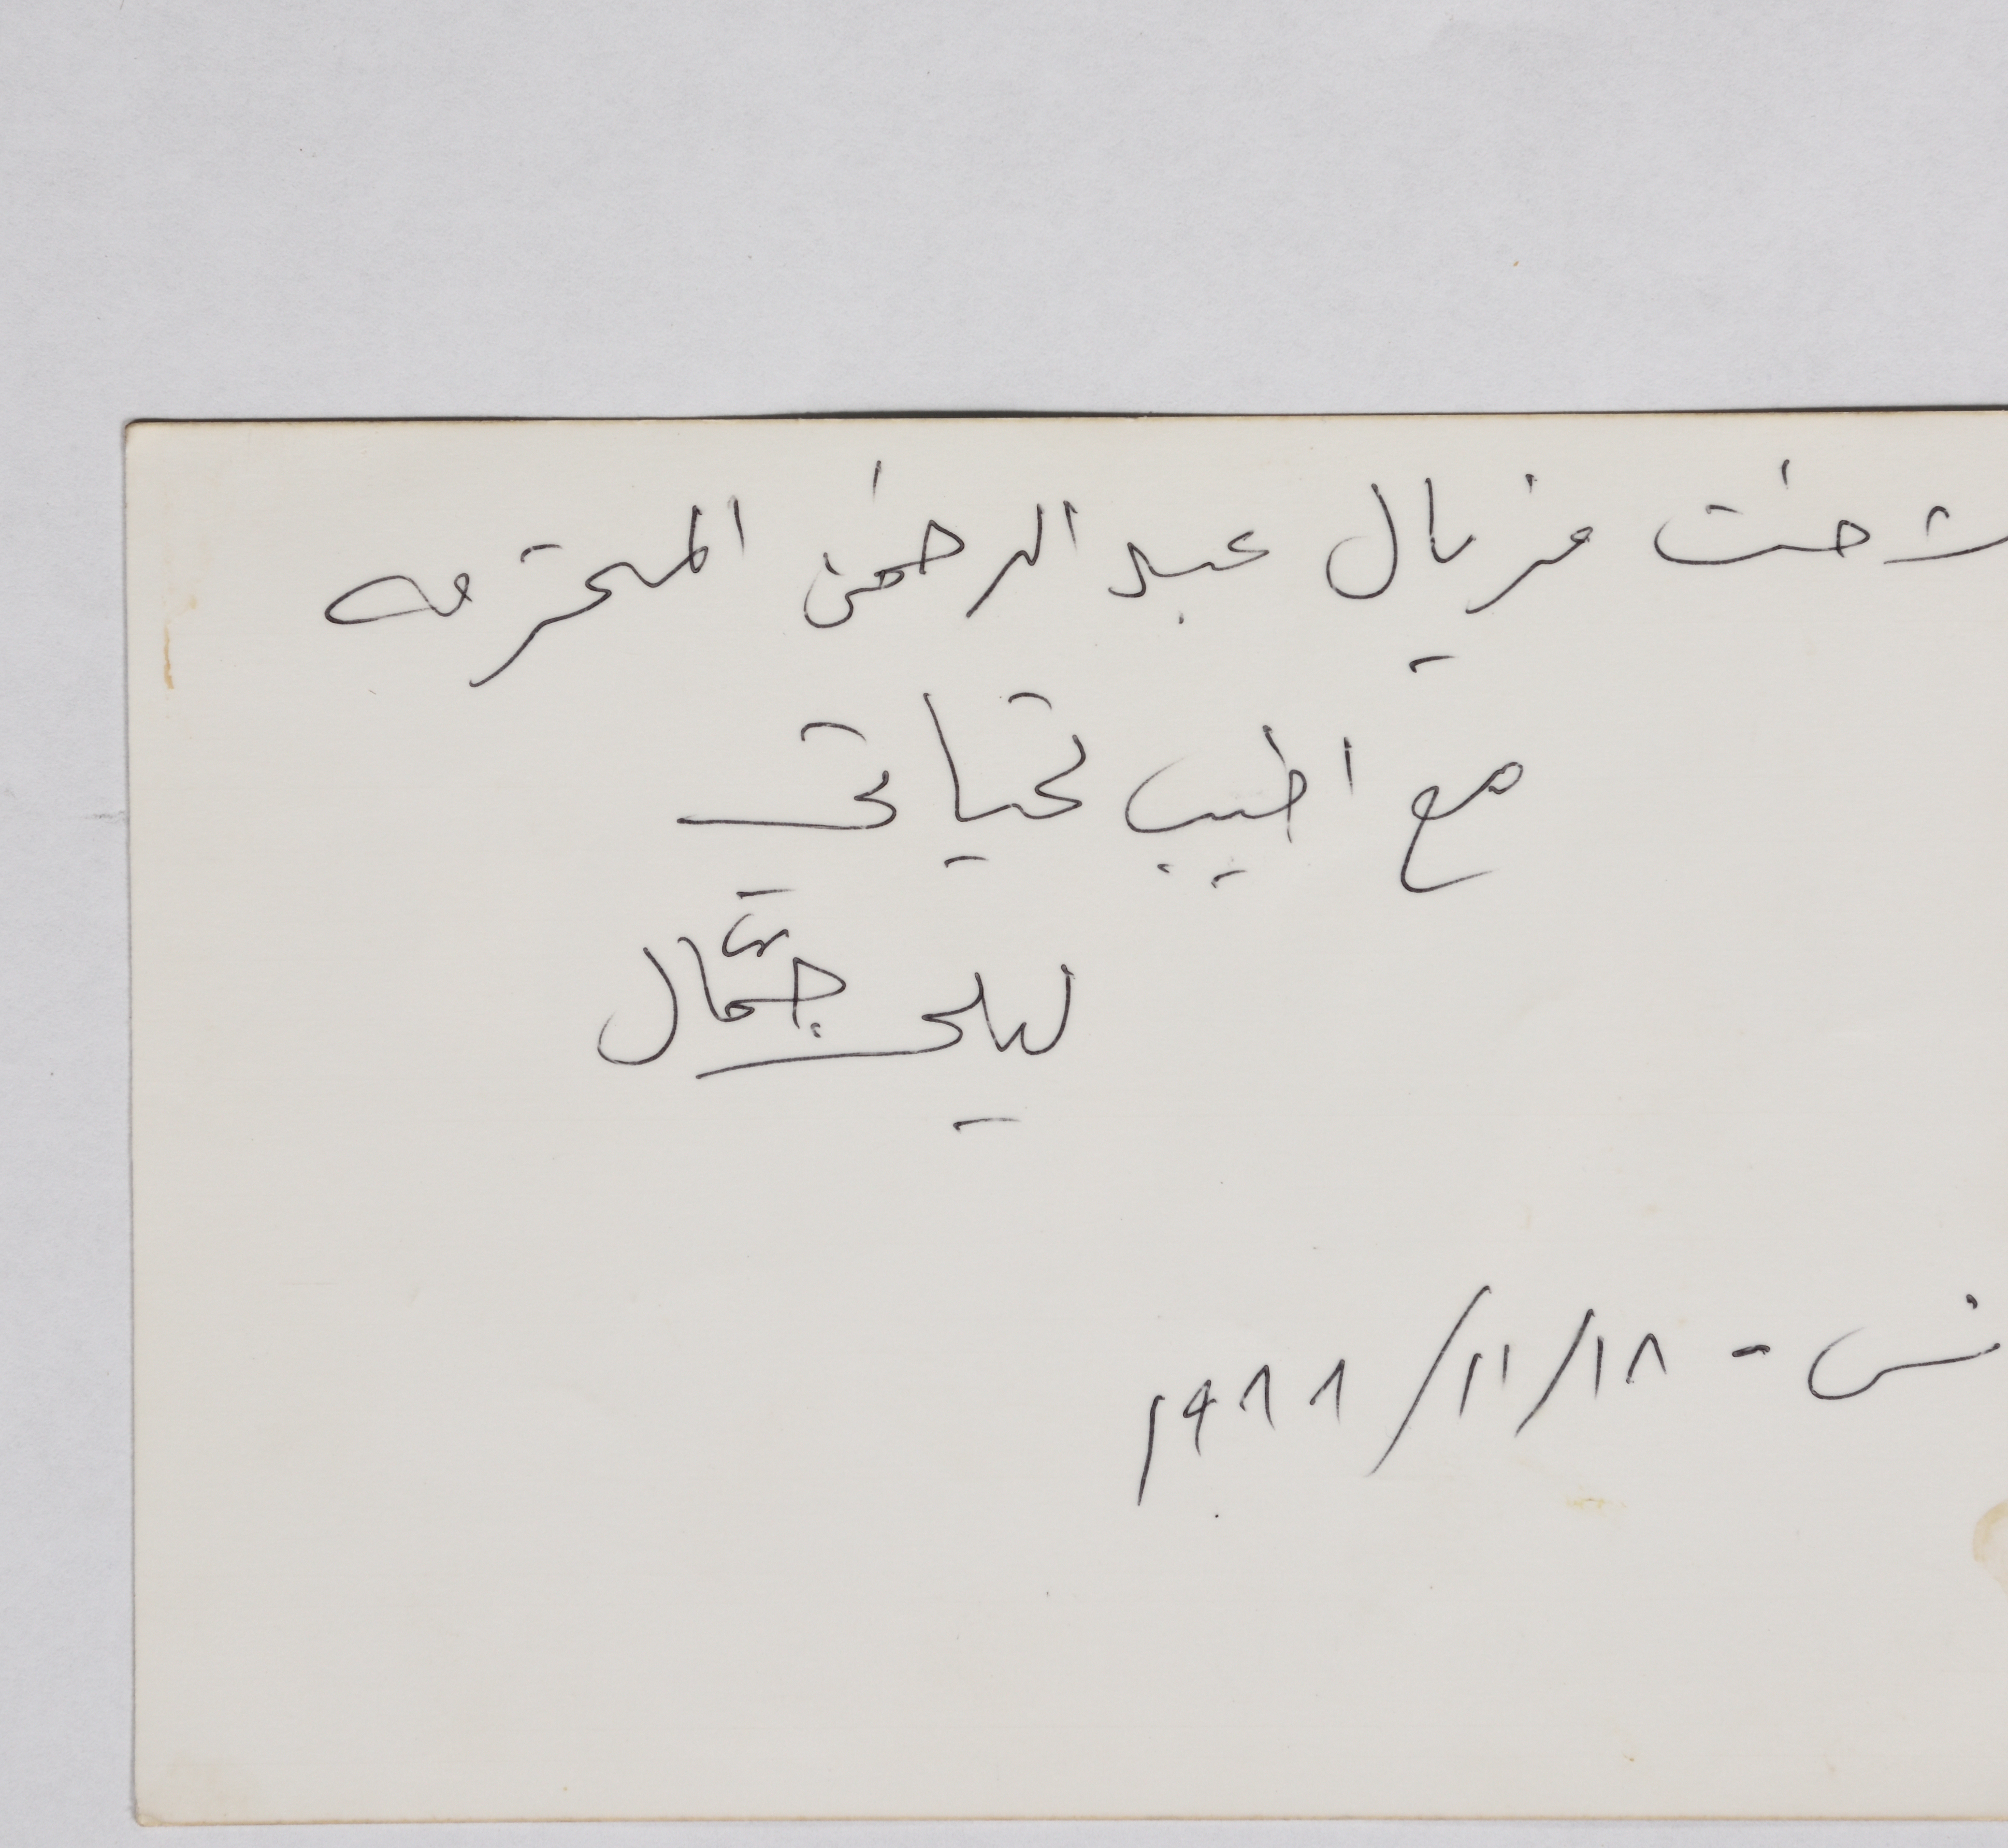 لاخت فريال عبد الرحمن المحترمه
مع اطيب تحياتي
ليلى جمّال
نس - ١٨/١١/١٩٨٨